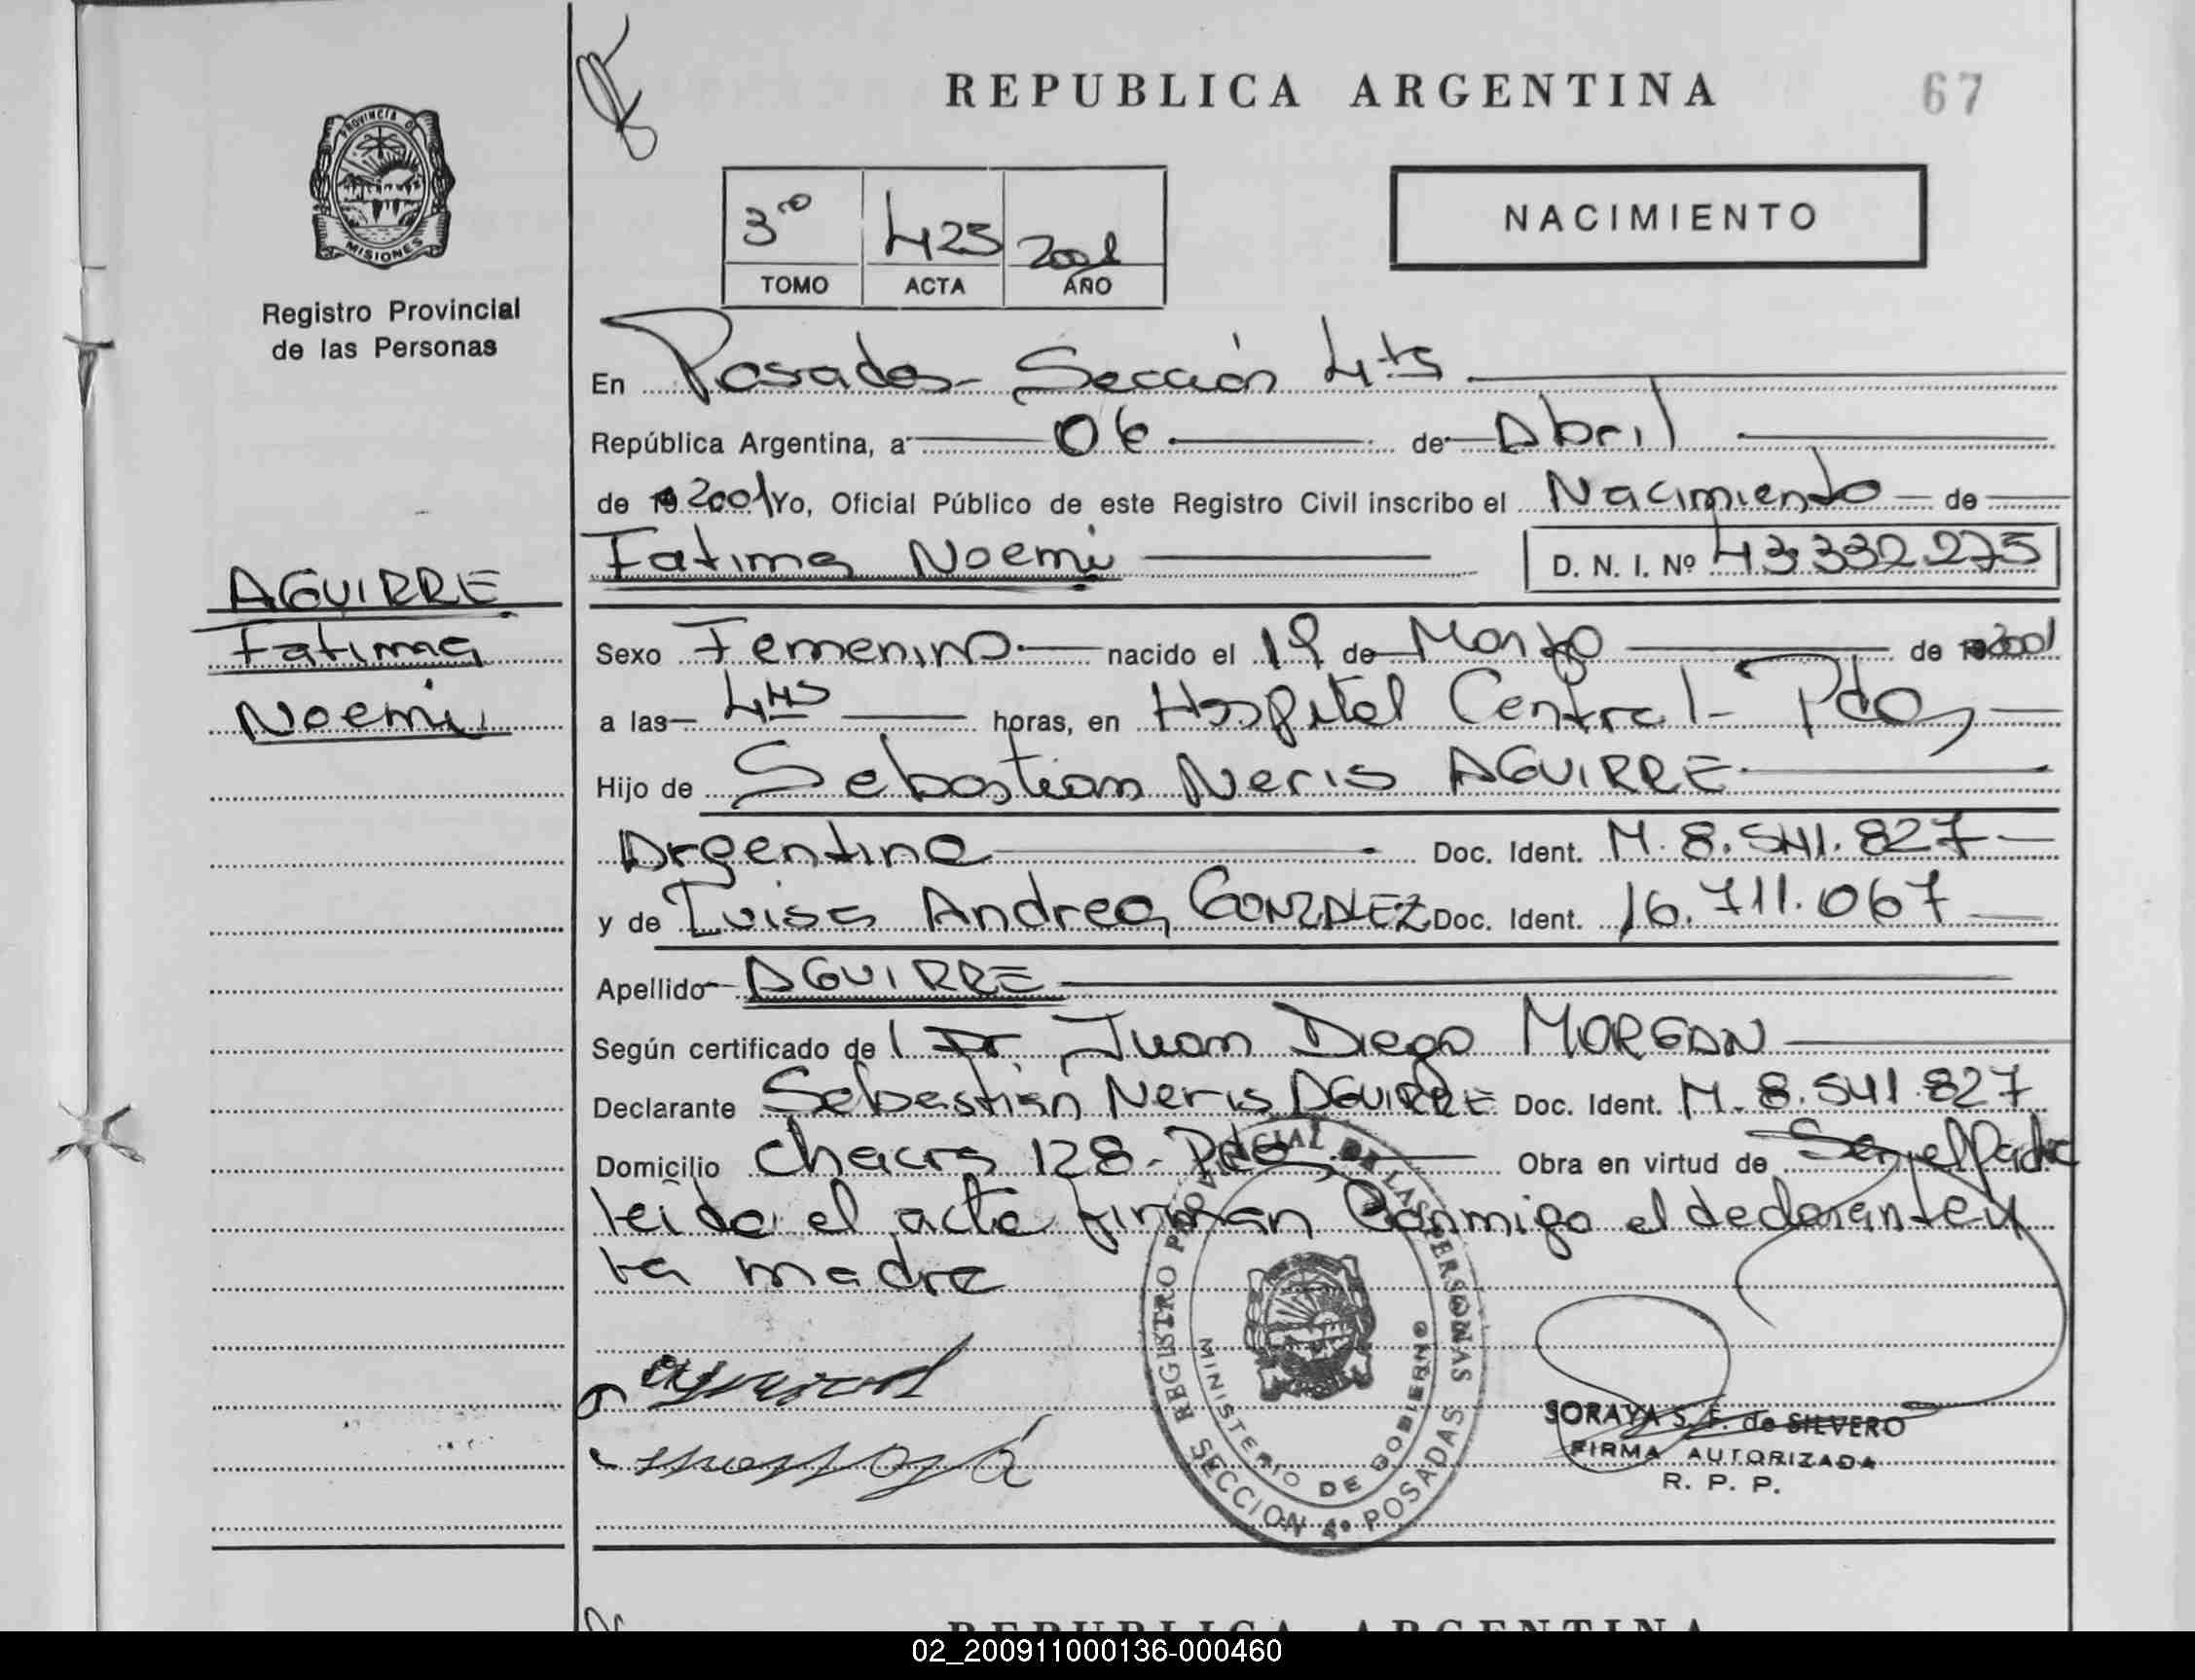 REPUBLICA ARGENTINA
67
PROVINCIA DE
MISIONES
Registro Provincial
de las Personas
NACIMIENTO
3ro 425 2001
TOMO ACTA AÑO
En Posadas - Sección 4ta
República Argentina, a 06 de Abril
de 19 2001 Yo, Oficial Público de este Registro Civil inscribo el Nacimiento de
Fatima Noemi D. N. I. Nº 43.332.275
AGUIRRE
Fatima
Noemi
Sexo Femenino nacido el 19 de Marzo de 19 2001
a las 4 hs horas, en Hospital Central - Pdas
Hijo de Sebastian Neris AGUIRRE
Argentina Doc. Ident. M. 8.541.827
y de Luisa Andrea GONZALEZ Doc. Ident. 16.711.067
Apellido AGUIRRE
Según certificado de l Dr Juan Diego MORGAN
Declarante Sebastián Neris AGUIRRE Doc. Ident. M. 8.541.827
Domicilio Chacra 128 - Pdas Obra en virtud de Ser el Padre
Leida el acta firman Conmigo el declarante y
La madre
REGISTRO PROVINCIAL DE LAS PERSONAS
MINISTERIO DE GOBIERNO
SECCION 4º POSADAS
SORAYA S. F. de SILVERO
FIRMA AUTORIZADA
R. P. P.
REPUBLICA ARGENTINA
02_200911000136-000460